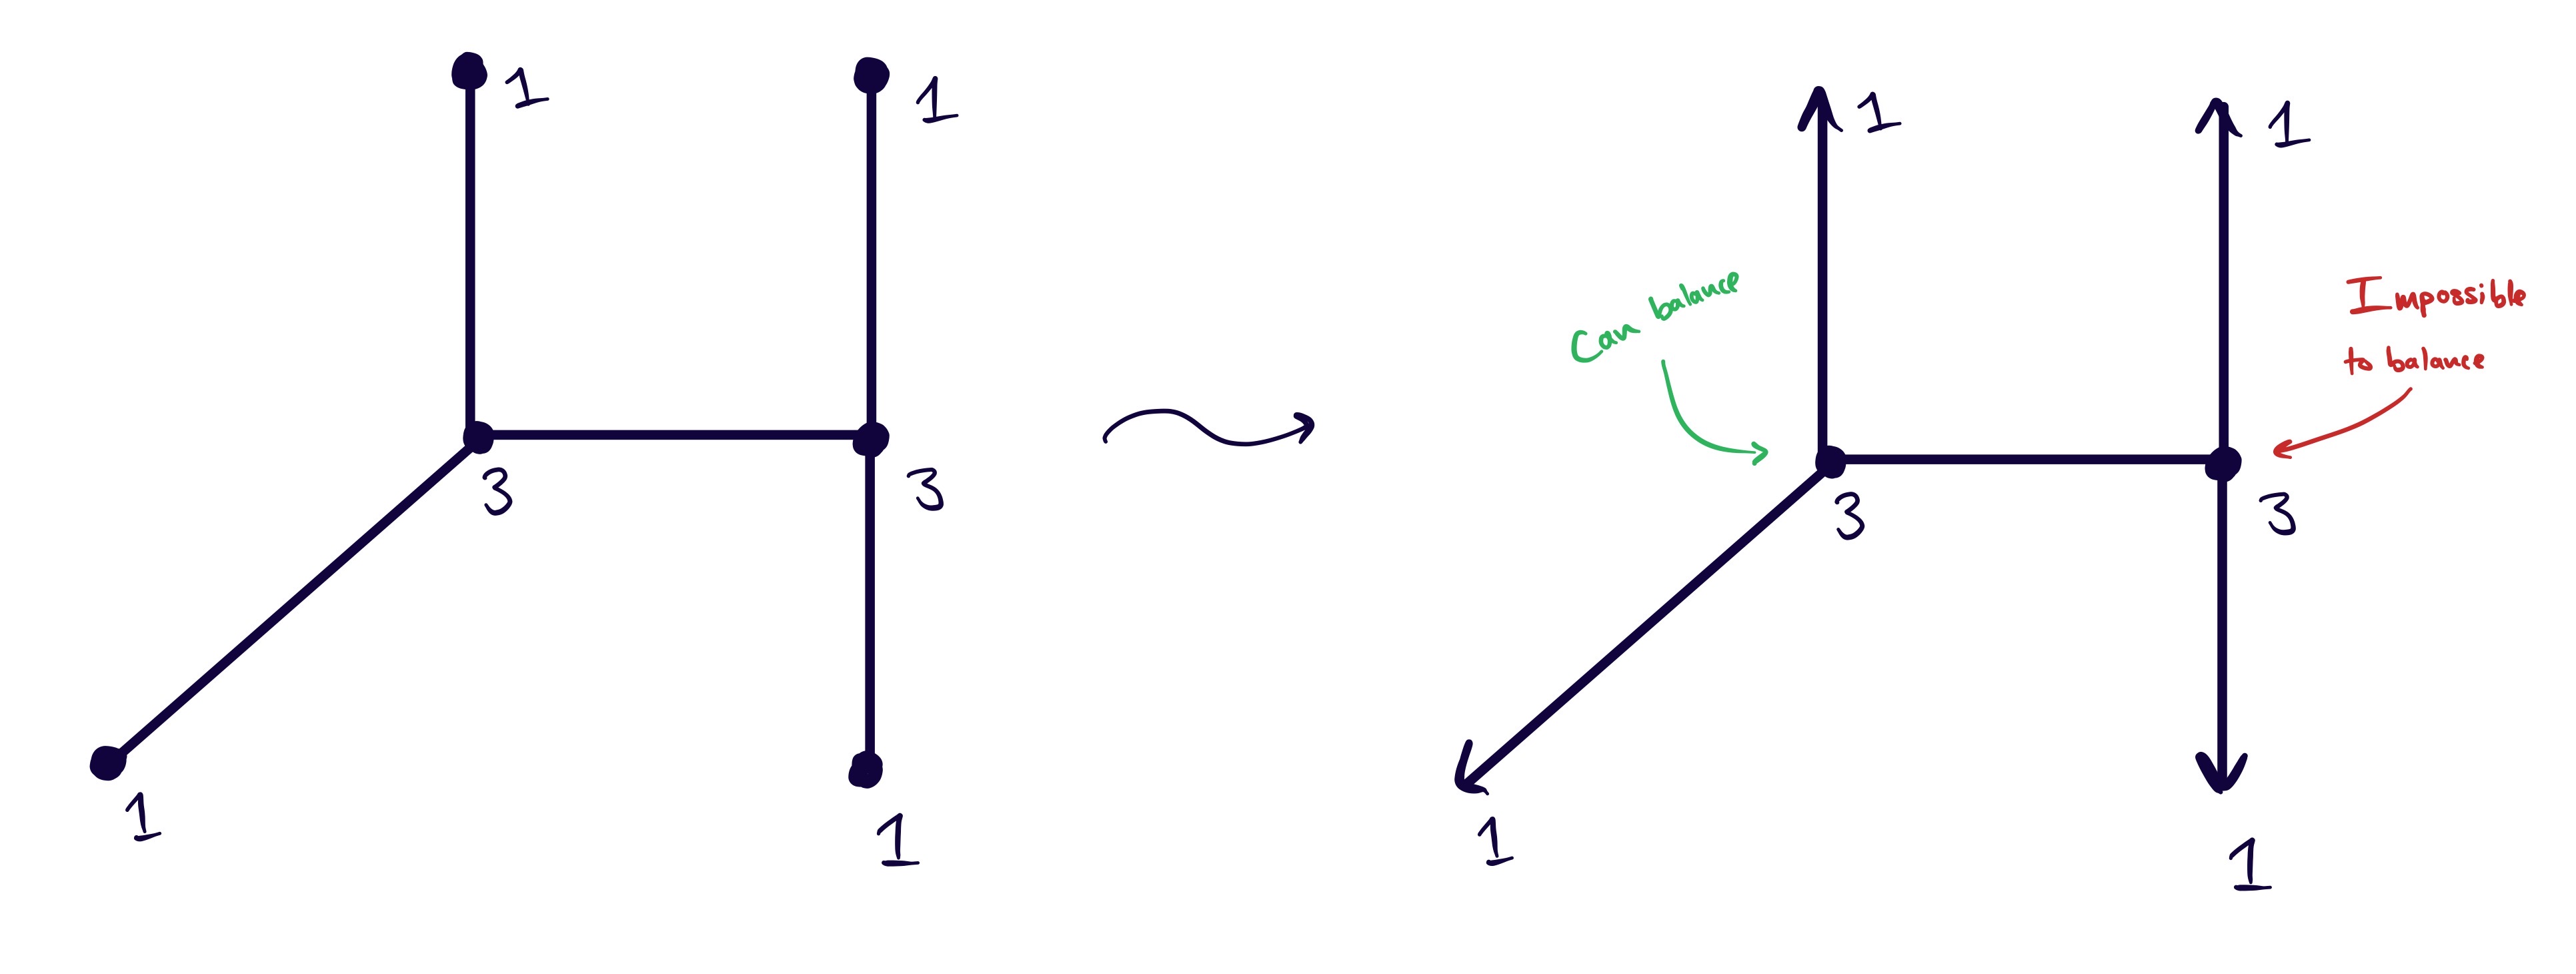 1
1
3
3
1
1
Can balance
1
1
Impossible
to balance
3
3
1
1